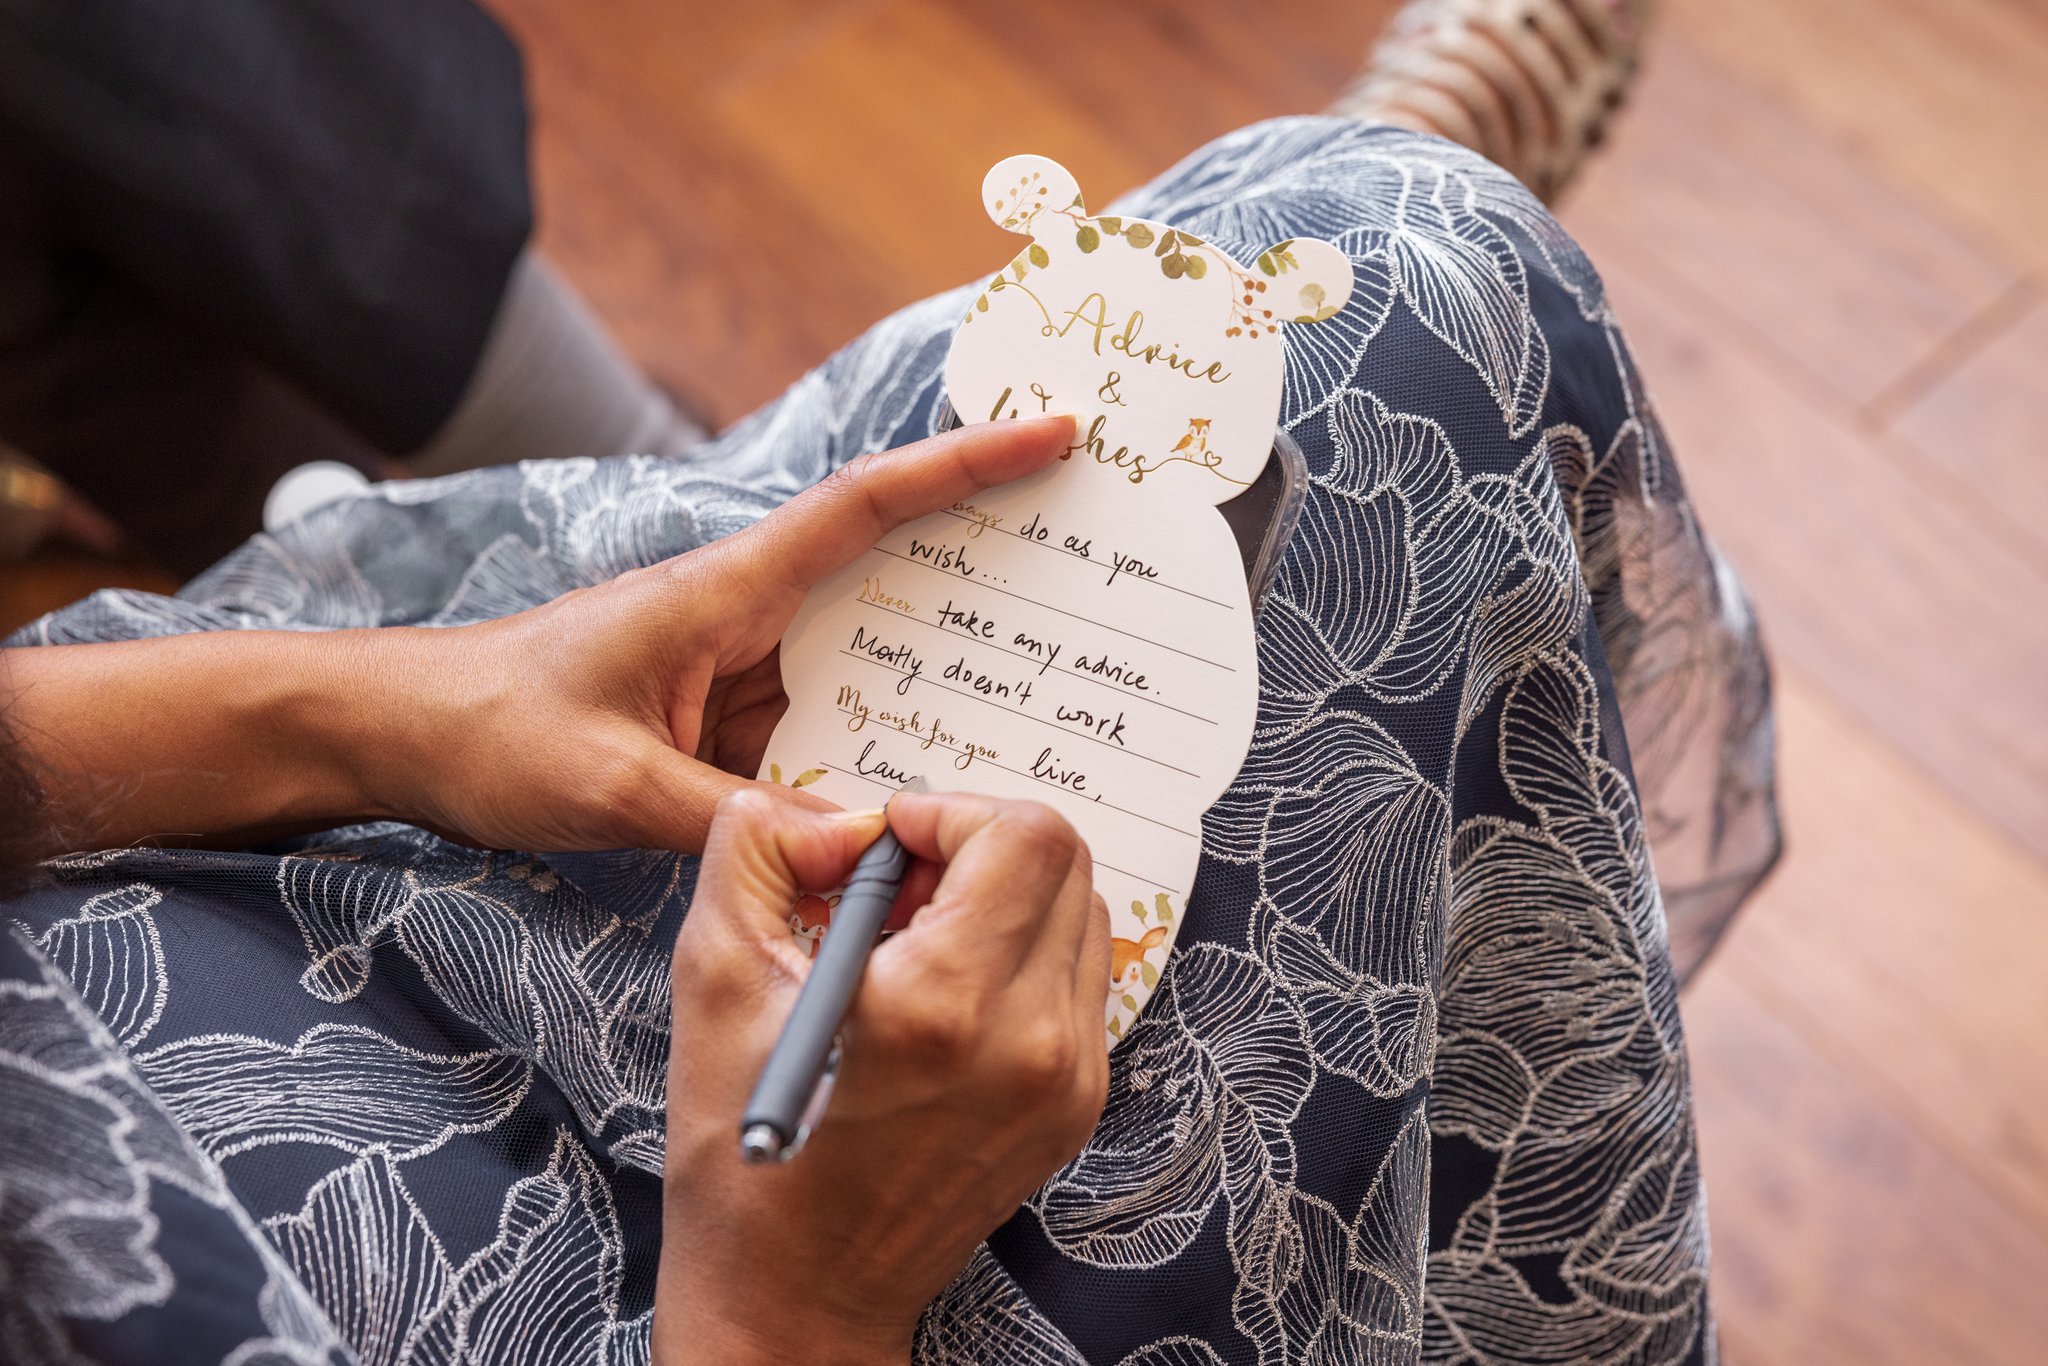 Advice
&
Wishes
Always do as you
wish...
Never take any advice.
Mostly doesn't work
My wish for you live,
lau